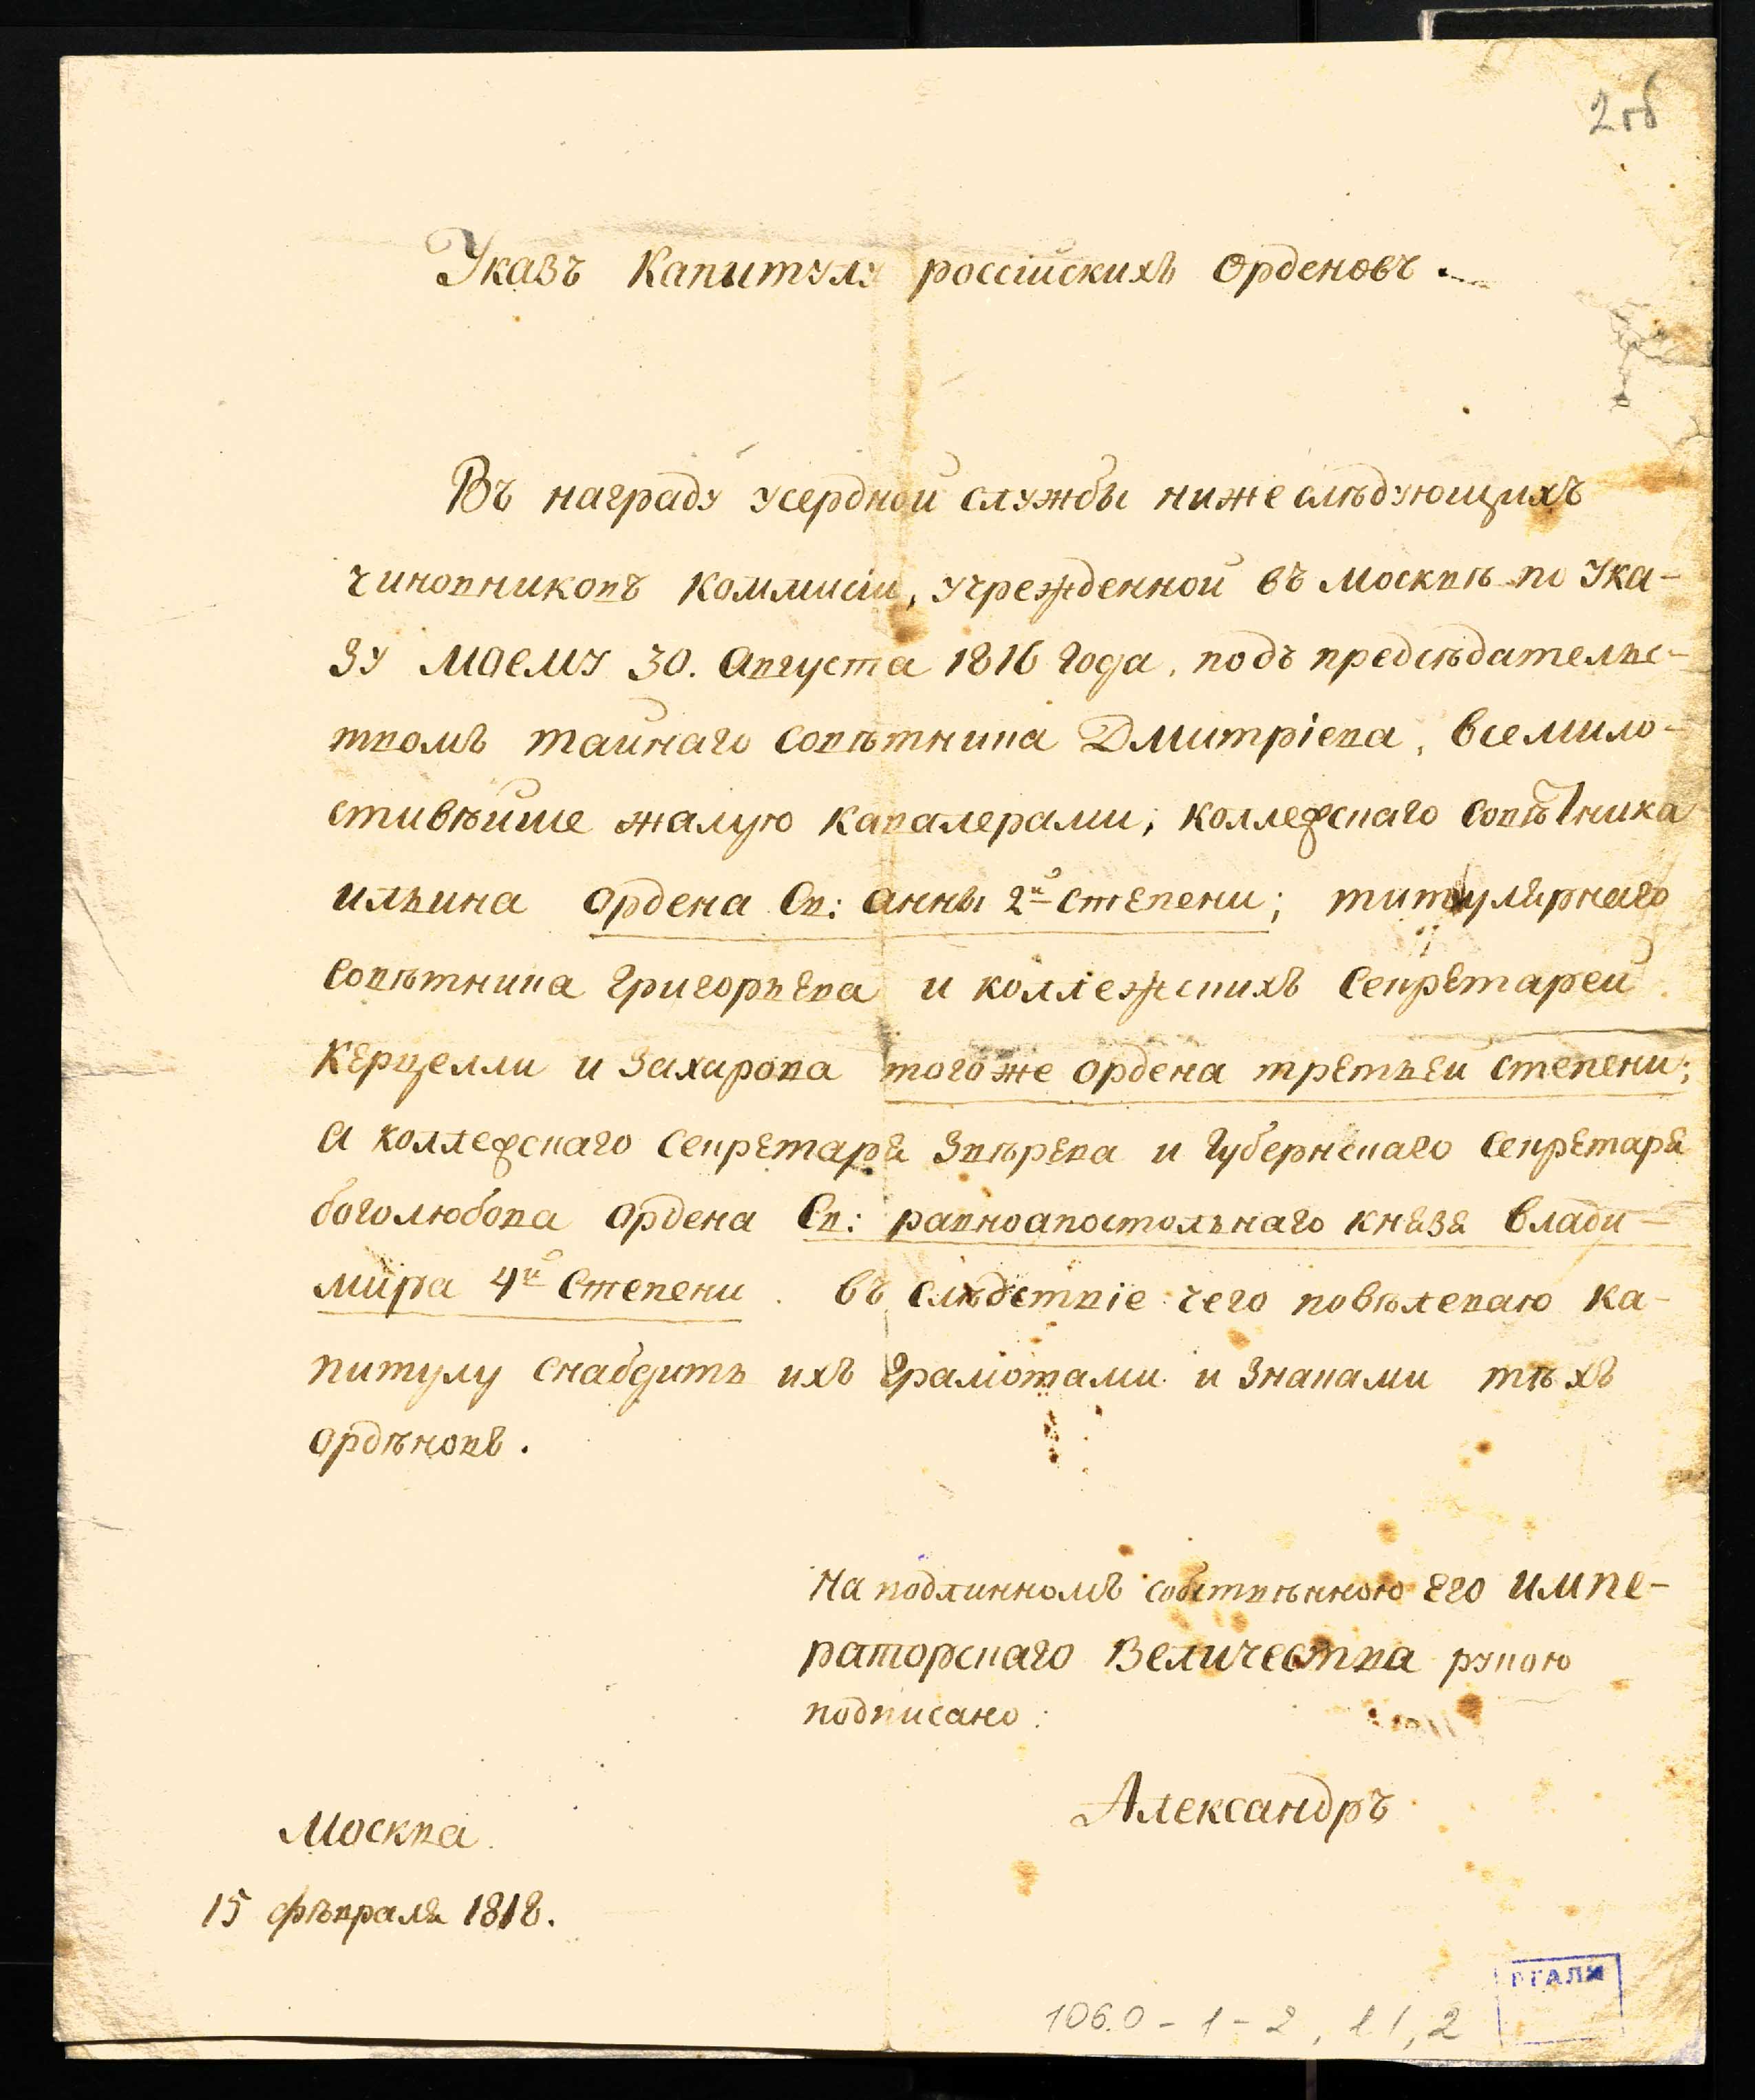 2об
Указъ Капитулу россійскихъ Орденовъ.
Въ награду усердной службы нижеслѣдующихъ
чиновниковъ коммисіи, учрежденной въ Москвѣ по Ука-
зу моему 30. Августа 1816 года, подъ предсѣдательс-
твомъ тайнаго совѣтника Дмитріева, Всемило-
стивѣйше жалую кавалерами; коллежскаго совѣтника
ильина Ордена Св: анны 2й степени; титулярнаго
совѣтника григорьева и коллежскихъ Секретарей
Керцелли и Захарова тогоже ордена третьей степени;
А коллежскаго Секретаря Звѣрева и Губернскаго Секретаря
боголюбова Ордена Св: равноапостольнаго князя Влади-
мира 4й Степени. въ слѣдствіе чего повѣлеваю ка-
питулу снабдить ихъ грамотами и знаками тѣхъ
ордѣновъ.
На подлинномъ собствѣнною Его Импе-
раторскаго Величества рукою
подписано:
Александръ
Москва.
15 фѣвраля 1818.
106.0-1-2, л 1, 2
РГАЛИ